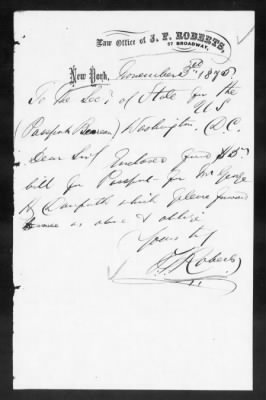 Law Office of J. F. ROBERTS,
57 BROADWAY,
New York, November 3rd 1875
To The Secy of State for the
U S
(Passport Bureau) Washington, D.C.
Dear Sir Enclosed find $5
bill for Passport for Mr George
H Danforth which please forward
same as above & oblige
Yours tly
J F Roberts